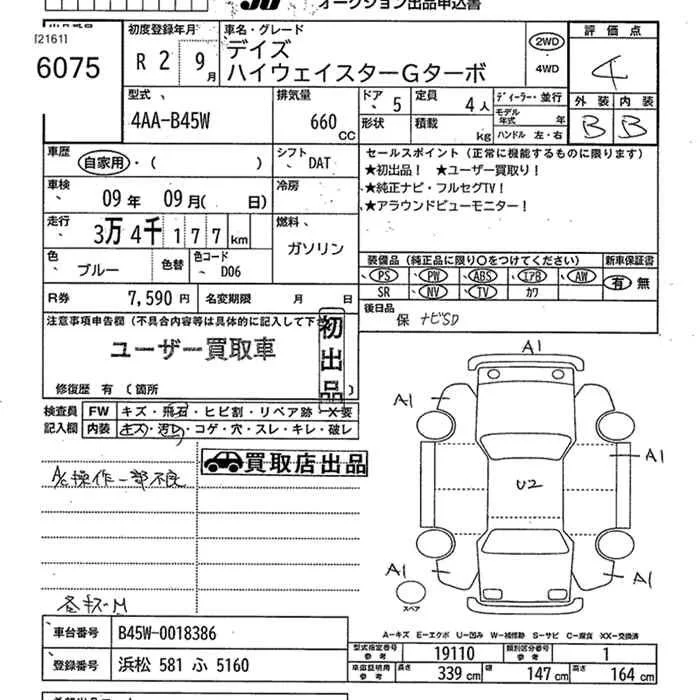 オークション出品申込書
[2161]
6075
初度登録年月
R 2 9月
車名・グレード
デイズ
ハイウェイスターGターボ
2WD
4WD
評価点
4
型式
4AA-B45W
排気量
660 CC
ドア 5
定員 4人
形状
積載 kg
ディーラー・並行
モデル年式 年
ハンドル 左・右
外装 内装
B B
車歴
自家用・( )
シフト DAT
車検
09年 09月( 日)
冷房
走行
3万4千177km
燃料
ガソリン
色
ブルー
色替
色コード
D06
R券 7,590円
名変期限 月 日
セールスポイント(正常に機能するものに限ります)
★初出品! ★ユーザー買取り!
★純正ナビ・フルセグTV!
★アラウンドビューモニター!
装備品(純正品に限り○をつけてください)
新車保証書
PS PW ABS エアB AW
有 無
SR NV TV カワ
後日品
保 ナビSD
注意事項申告欄(不具合内容等は具体的に記入して下さ
初出品
ユーザー買取車
修復歴 有 (箇所
検査員
記入欄
FW キズ・飛石・ヒビ割・リペア跡・X要
内装 キズ・汚レ・コゲ・穴・スレ・キレ・破レ
買取店出品
A/C操作一部不良
各キズ・M
A1
A1
A1
U2
A1
A1
スペア
A-キズ E-エクボ U-凹み W-補修跡 S-サビ C-腐食 XX-交換済
車台番号 B45W-0018386
登録番号 浜松 581 ふ 5160
型式指定番号参考 19110
類別区分番号参考 1
車庫証明用参考
長さ 339 cm 幅 147 cm 高さ 164 cm